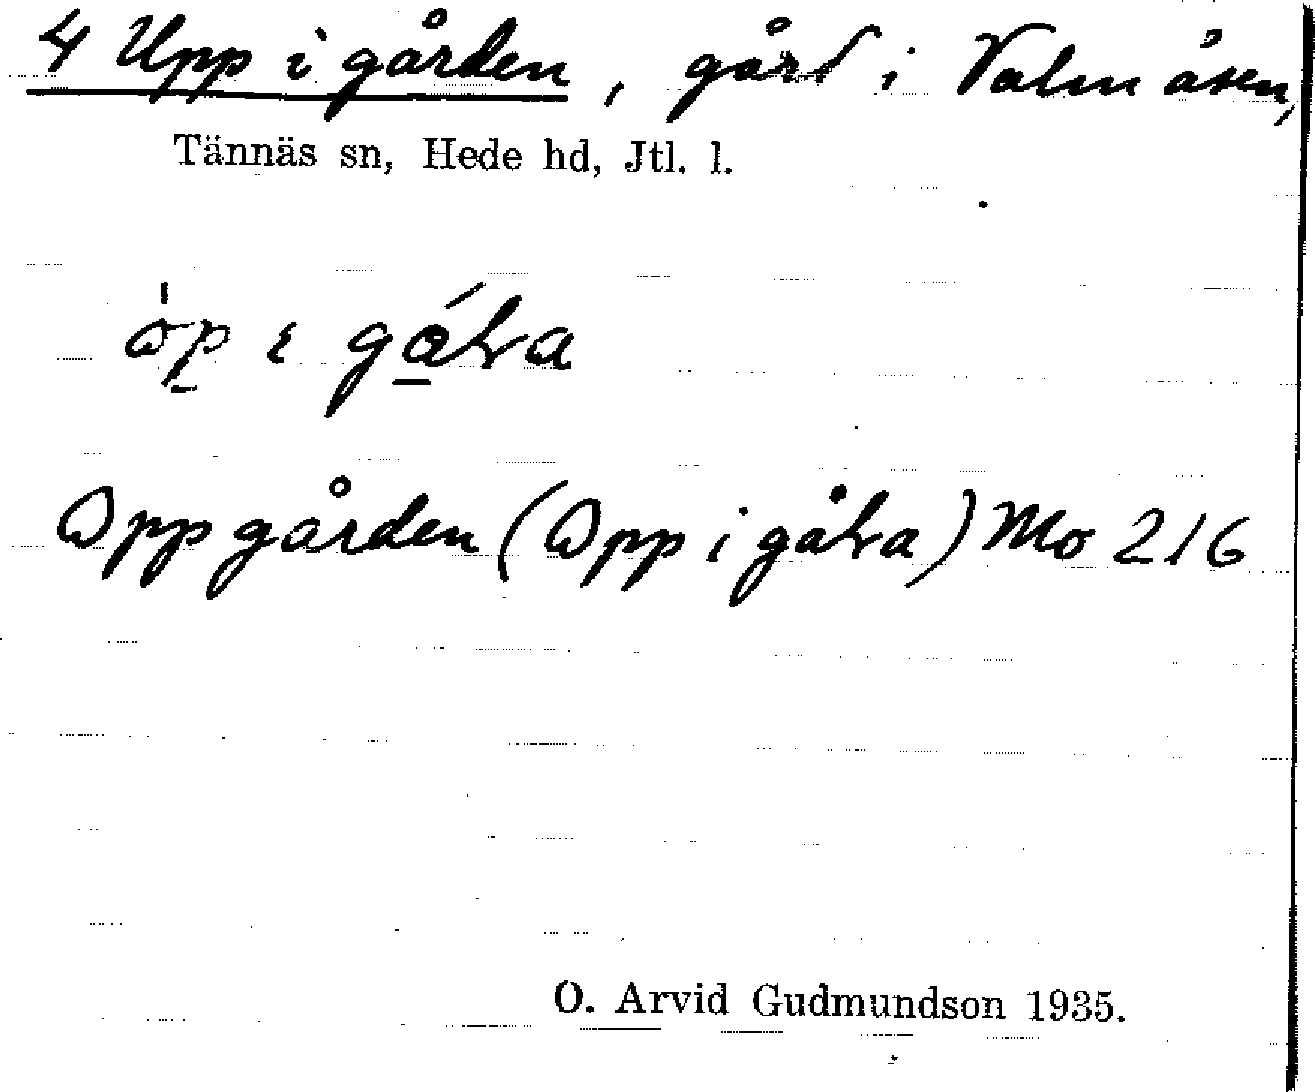 4 Upp i gården, gård i Valmåsen,
Tännäs sn, Hede hd, Jtl. l.
Oppgården (Opp i gåLra) Mo 216
O. Arvid Gudmundson 1935.